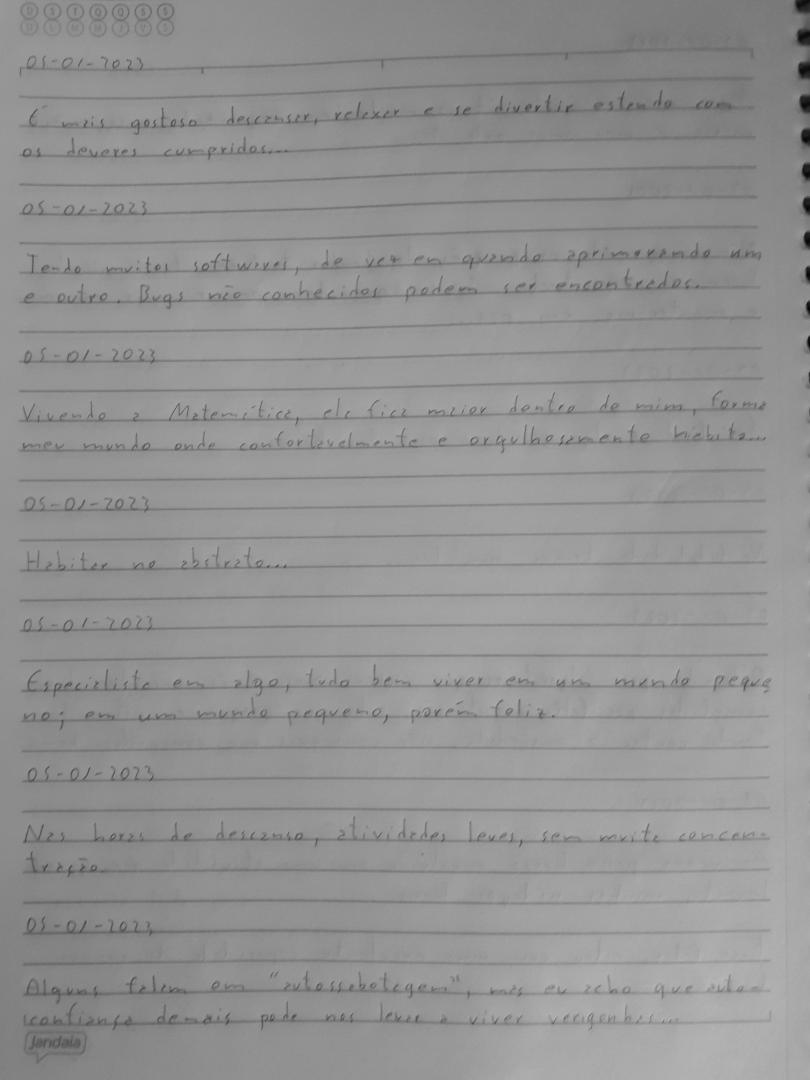 D S T Q Q S S
D L M M J V S
05-01-2023
É mais gostoso descansar, relaxar e se divertir estando com
os deveres cumpridos...
05-01-2023
Tendo muitos softwares, de vez en quando aprimorando um
e outro. Bugs não conhecidos podem ser encontrados.
05-01-2023
Vivendo a Matemática, ela fica maior dentro de mim, forma
meu mundo onde confortavelmente e orgulhosamente habito...
05-01-2023
Habitar no abstrato...
05-01-2023
Especialista em algo, tudo bem viver em um mundo peque
no; em um mundo pequeno, porém feliz.
05-01-2023
Nas horas de descanso, atividades leves, sem muita concen-
tração.
05-01-2023
Alguns falam em "autossabotagem", mas eu acho que auto-
confiança demais pode nos levar a viver vergonhas...
Jandaia